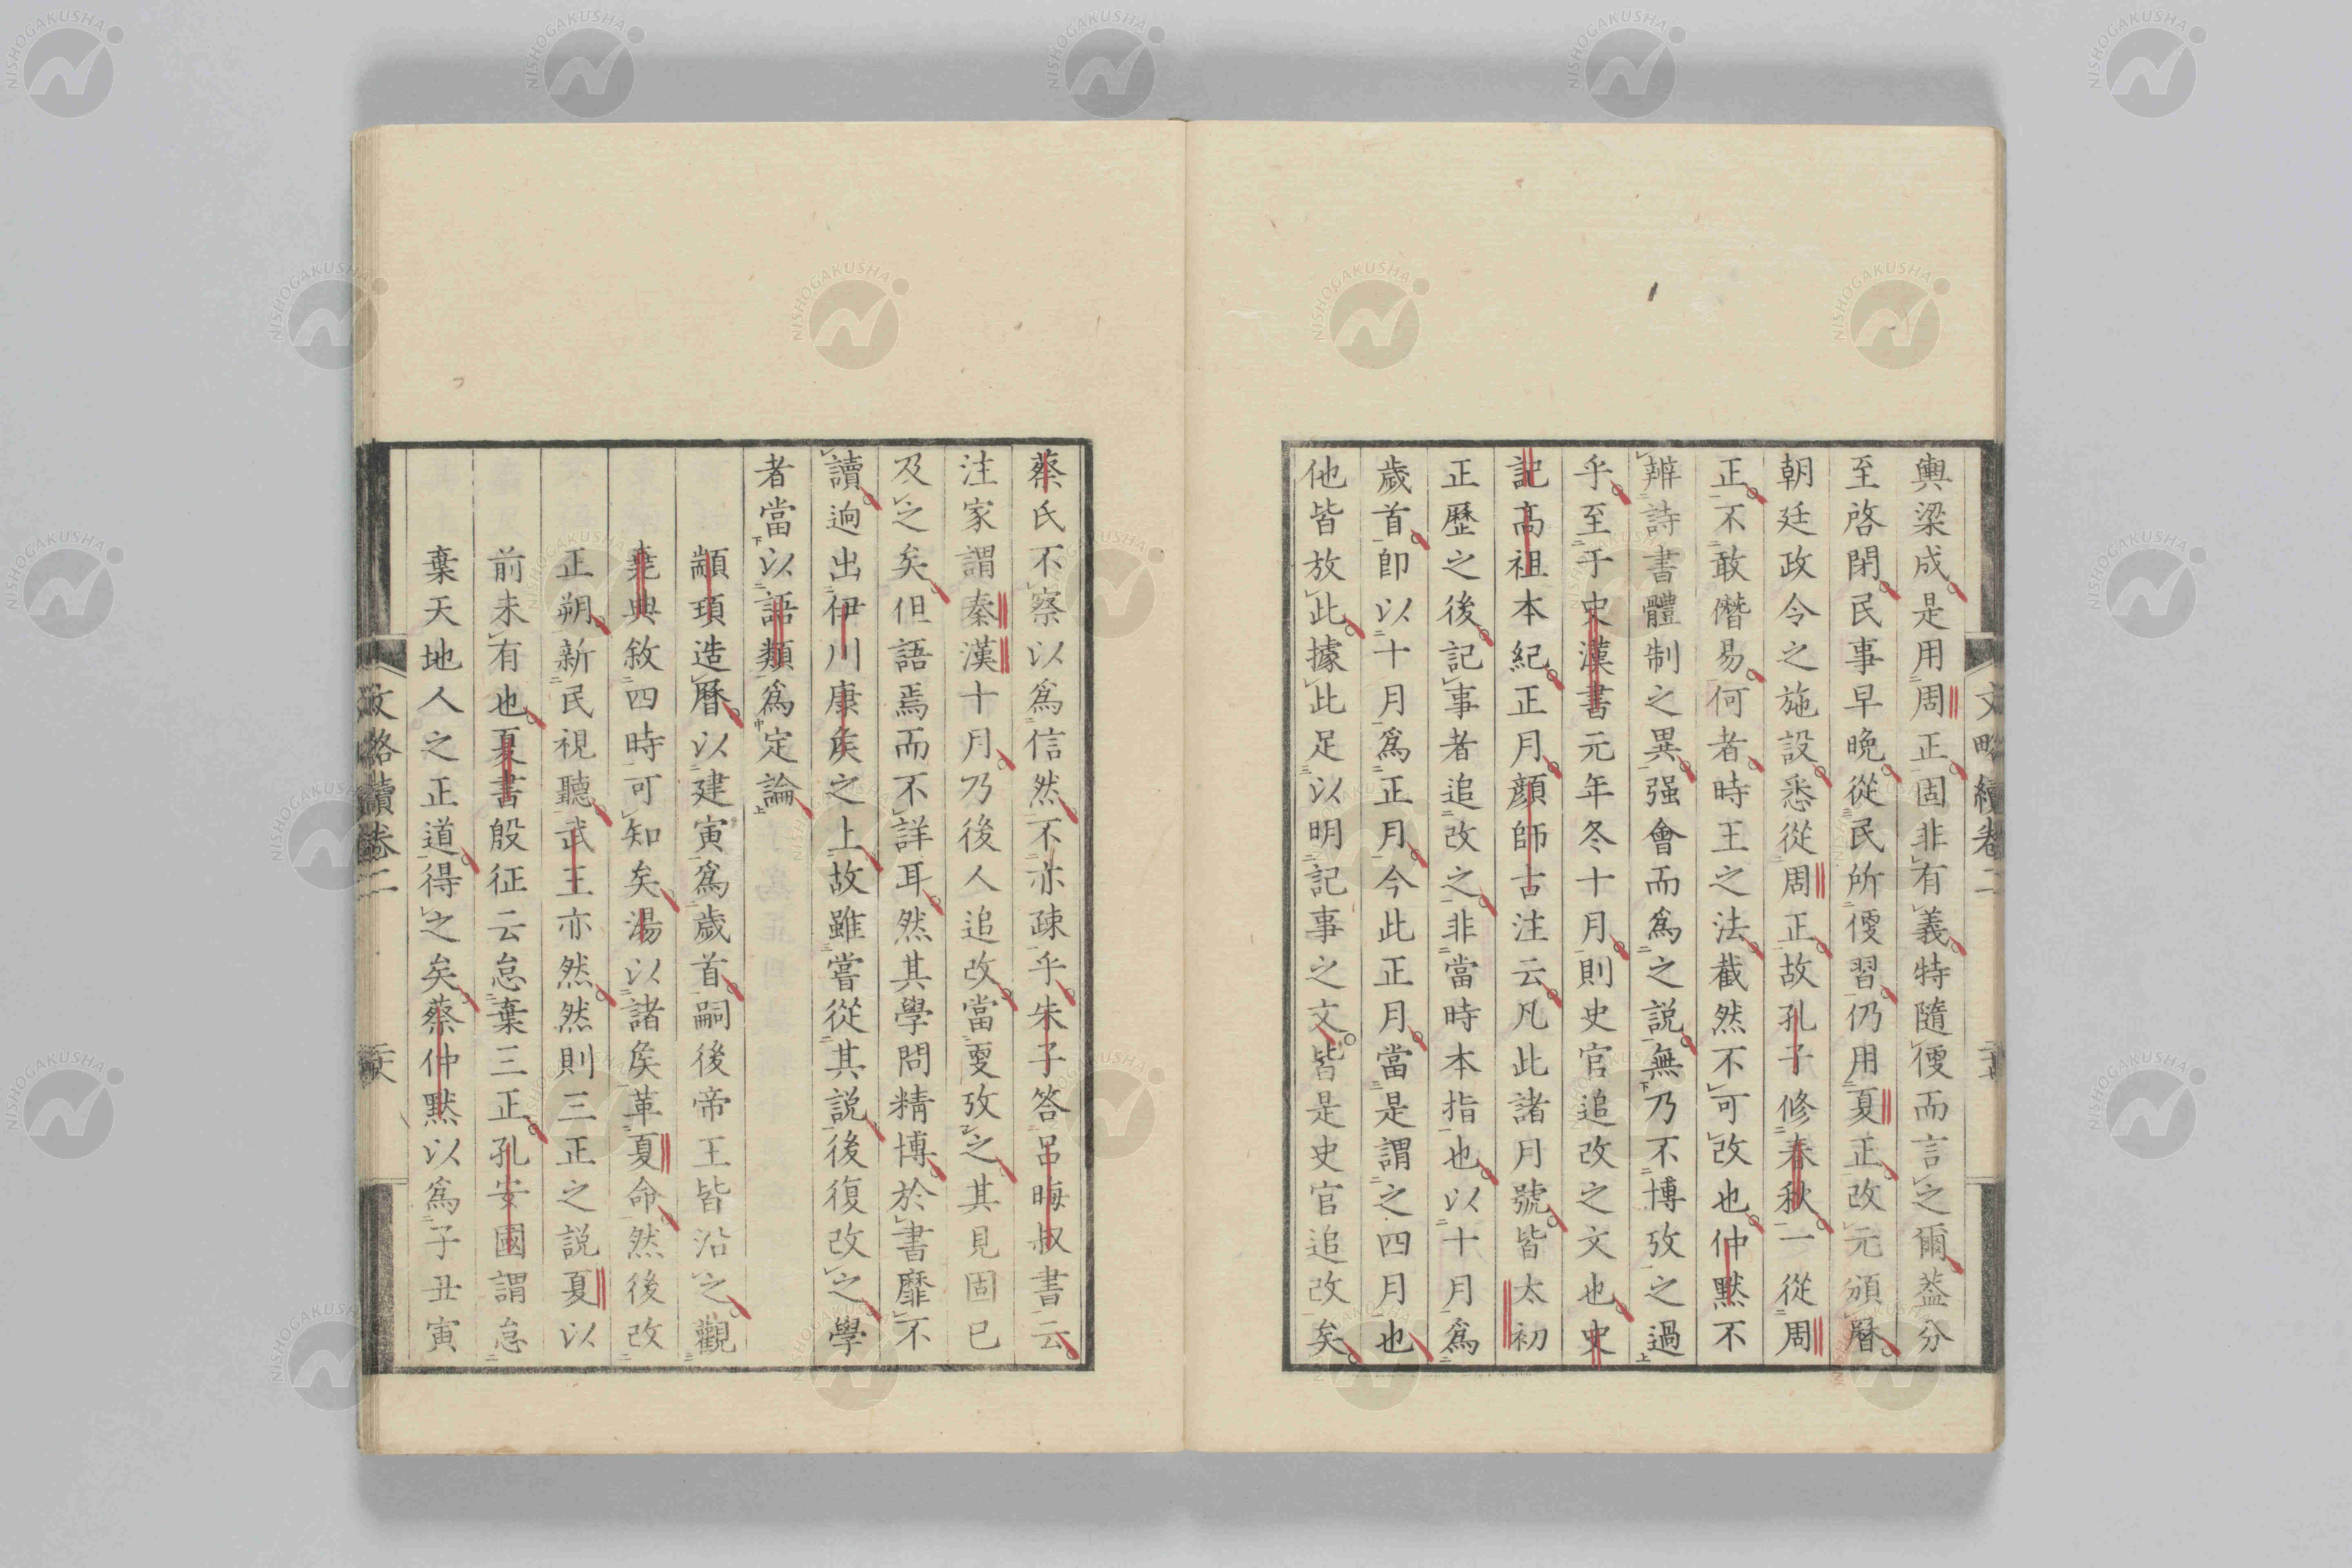 輿梁成是用周正固非有義特隨便而言之爾葢分
至啓閉民事早晩從民所便習仍用夏正改元頒曆
朝廷政令之施設悉從周正故孔子修春秋一從周
正不敢僭易何者時王之法截然不可改也仲默不
辨詩書體制之異强會而爲之説無乃不博攷之過
乎至于史漢書元年冬十月則史官追改之文也史
記高祖本紀正月顔師古注云凡此諸月號皆太初
正歷之後記事者追改之非當時本指也以十月爲
歲首即以十月爲正月今此正月當是謂之四月也
他皆放此據此足以明記事之文皆是史官追改矣
文略續卷二
二十七
蔡氏不察以爲信然不亦疎乎朱子答呂晦叔書云
注家謂秦漢十月乃後人追改當更攷之其見固已
及之矣但語焉而不詳耳然其學問精博於書靡不
讀逈出伊川康矦之上故雖嘗從其説後復改之學
者當以語類爲定論
顓頊造曆以建寅爲歲首嗣後帝王皆沿之觀
堯典敘四時可知矣湯以諸矦革夏命然後改
正朔新民視聽武王亦然然則三正之説夏以
前未有也夏書殷征云怠棄三正孔安國謂怠
棄天地人之正道得之矣蔡仲默以爲子丑寅
文略續卷二
二十八
NISHOGAKUSHA